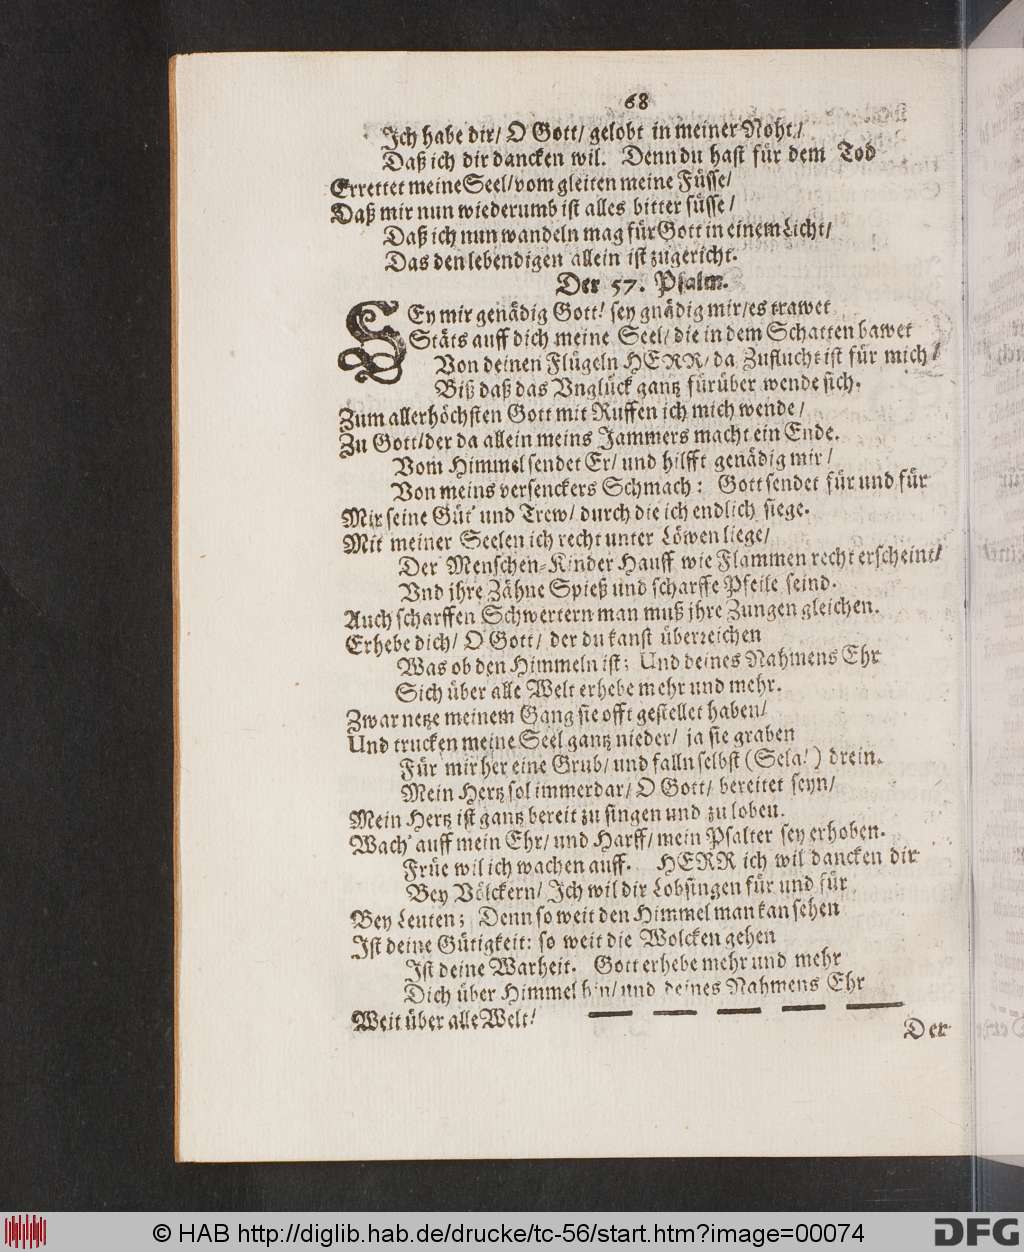 68
Ich habe dir/ O Gott/ gelobt in meiner Noht/
Daß ich dir dancken wil. Denn du hast für dem Tod
Errettet meine Seel/ vom gleiten meine Füsse/
Daß mir nun wiederumb ist alles bitter süsse/
Daß ich nun wandeln mag für Gott in einem Licht/
Das den lebendigen allein ist zugericht.
Der 57. Psalm.
SEy mir genädig Gott! sey gnädig mir/ es trawet
Stäts auff dich meine Seel/ die in dem Schatten bawet
Von deinen Flügeln HERR/ da Zuflucht ist für mich/
Biß daß das Vnglück gantz fürüber wende sich.
Zum allerhöchsten Gott mit Ruffen ich mich wende/
Zu Gott/ der da allein meins Jammers macht ein Ende.
Vom Himmel sendet Er/ und hilfft genädig mir/
Von meins versenckers Schmach: Gott sendet für und für
Mir seine Güt' und Trew/ durch die ich endlich siege.
Mit meiner Seelen ich recht unter Löwen liege/
Der Menschen-Kinder Hauff wie Flammen recht erscheint/
Vnd jhre Zähne Spieß und scharffe Pfeile seind.
Auch scharffen Schwertern man muß jhre Zungen gleichen.
Erhebe dich/ O Gott/ der du kanst überreichen
Was ob den Himmeln ist; Und deines Nahmens Ehr
Sich über alle Welt erhebe mehr und mehr.
Zwar netze meinem Gang sie offt gestellet haben/
Und trucken meine Seel gantz nieder/ ja sie graben
Für mir her eine Grub/ und falln selbst (Sela!) drein.
Mein Hertz sol immerdar/ O Gott/ bereitet seyn/
Mein Hertz ist gantz bereit zu singen und zu loben.
Wach' auff mein Ehr/ und Harff/ mein Psalter sey erhoben.
Früe wil ich wachen auff. HERR ich wil dancken dir
Bey Völckern/ Ich wil dir Lobsingen für und für
Bey Leuten; Denn so weit den Himmel man kan sehen
Ist deine Gütigkeit: so weit die Wolcken gehen
Ist deine Warheit. Gott erhebe mehr und mehr
Dich über Himmel hin/ und deines Nahmens Ehr
Weit über alle Welt!
Der
© HAB http://diglib.hab.de/drucke/tc-56/start.htm?image=00074
DFG